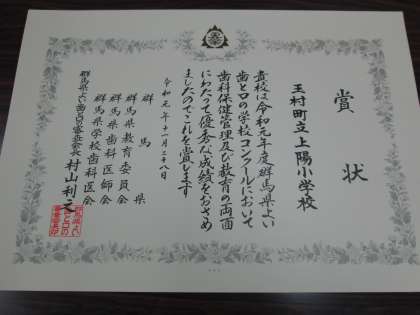 賞状
玉村町立上陽小学校
貴校は令和元年度群馬県よい
歯と口の学校コンクールにおいて
歯科保健管理及び教育の両面
にわたって優秀な成績をおさめ
ましたのでこれを賞します
令和元年十一月二十八日
群馬県
群馬県教育委員会
群馬県歯科医師会
群馬県学校歯科医会
群馬県よい歯と口の審査会長 村山利之